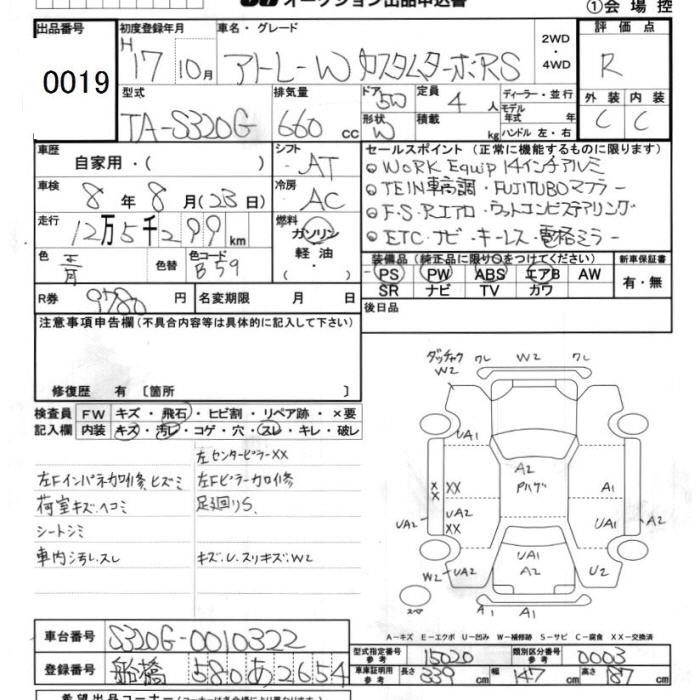 オークション出品申込書
①会場控
出品番号 初度登録年月 車名・グレード 2WD・4WD 評価点
0019 H17 10月 アトレーW カスタムターボRS R
型式 排気量 ドア 定員 ディーラー・並行 外装 内装
TA-S320G 660cc 5W 4人 モデル年式 年 C C
形状 W 積載 kg ハンドル 左・右
車歴 自家用・( ) シフト AT セールスポイント (正常に機能するものに限ります)
・WORK Equip 14インチアルミ
車検 8年8月(23日) 冷房 AC ・TEIN車高調・FUJITUBOマフラー
・F.S.Rエアロ・ウットコンビステアリング
走行 12万5千299km 燃料 ガソリン 軽油・( ) ・ETC・ナビ・キーレス・電格ミラー
色 青 色替 色コード B59 装備品 (純正品に限り○をつけてください) 新車保証書
PS PW ABS エアB AW 有・無
SR ナビ TV カワ
R券 9780円 名変期限 月 日 後日品
注意事項申告欄 (不具合内容等は具体的に記入して下さい)
修復歴 有 〔箇所 〕
検査員 FW キズ・飛石・ヒビ割・リペア跡・×要
記入欄 内装 キズ・汚レ・コゲ・穴・スレ・キレ・破レ
左センターピラーXX
左Fインパネカロ修、ヒズミ 左Fピラーカロ修
荷室キズ・ヘコミ 足廻りS、
シートシミ
車内汚レ.スレ キズ.U.スリキズ.W2
ダッチャク W2 ワレ W2 ワレ
UA1
A2
アルゲ
XX XX A1
UA2 UA2 XX UA1 A2
UA1
W2 UA2 A2 U2
スマ A1 A1
A-キズ E-エクボ U-凹み W-補修跡 S-サビ C-腐食 XX-交換済
車台番号 S320G-0010322
型式指定番号 参考 15020 類別区分番号 参考 0003
登録番号 船橋 580 あ 2654
車車証明用 参考 長さ 339cm 幅 147cm 高さ 187cm
希望出品コーナー